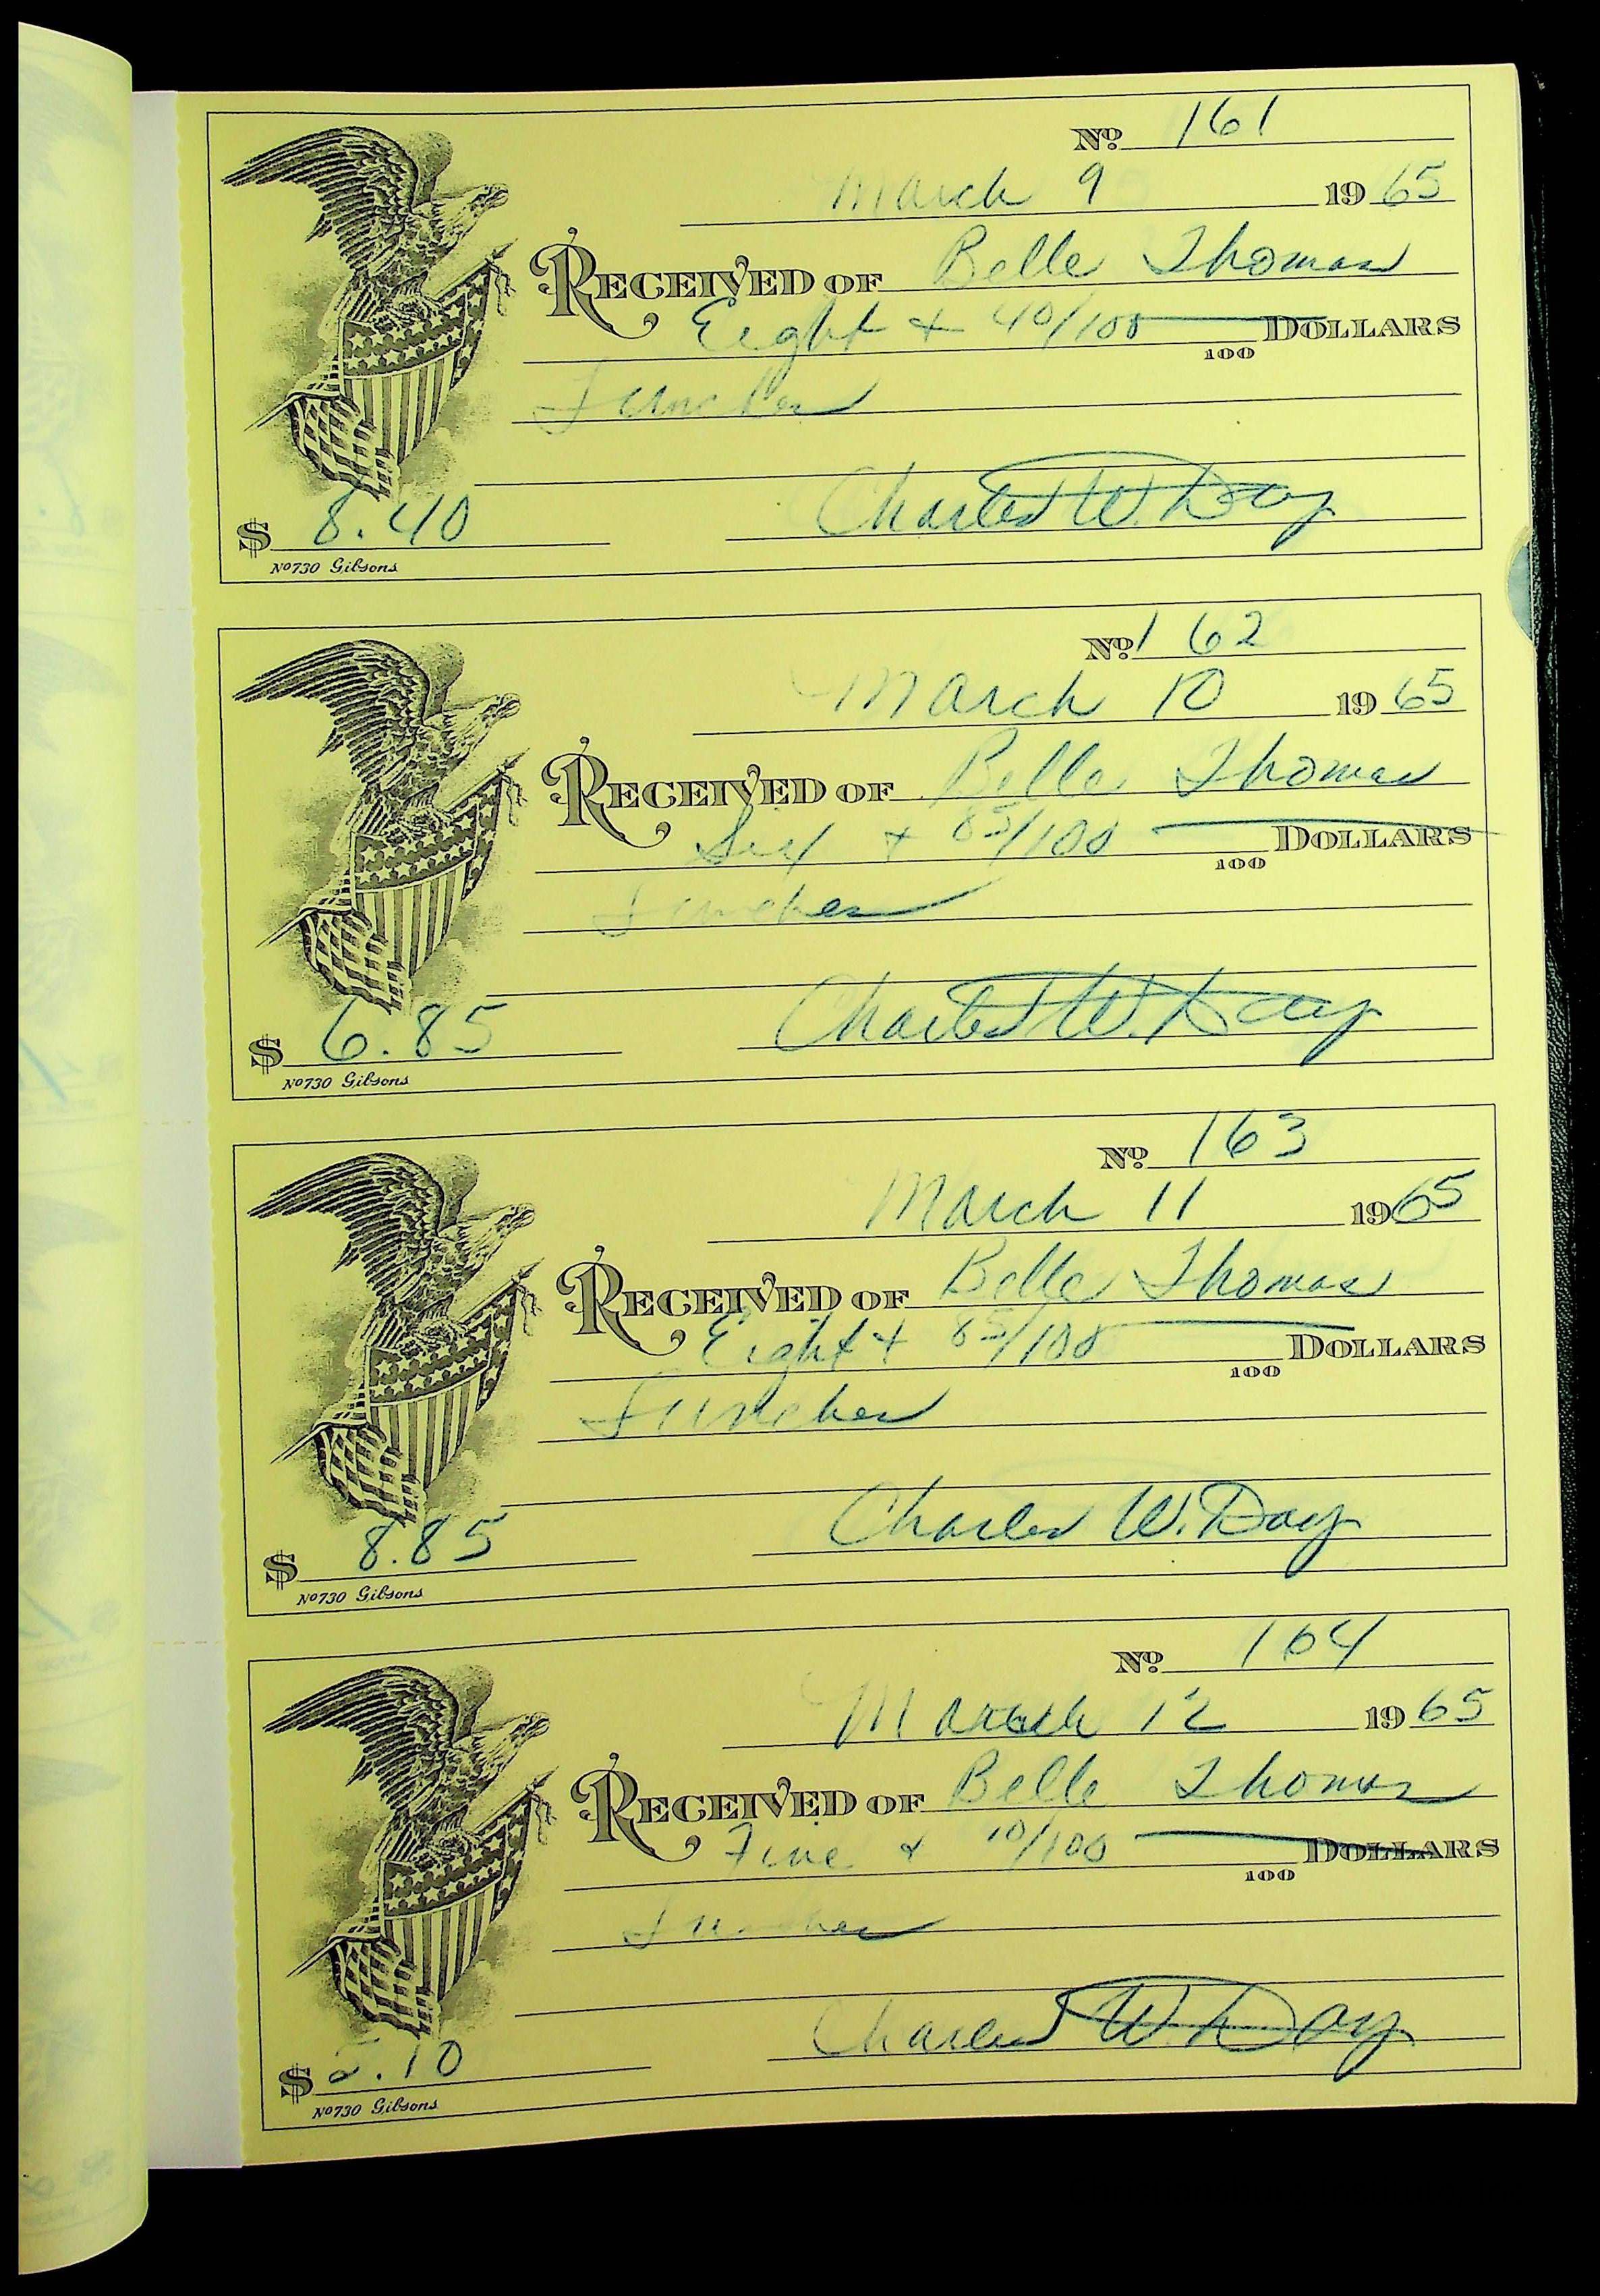 No. 161
March 9 1965
RECEIVED OF Belle Thomas
Eight + 40/100 DOLLARS
100
Lunches
Charles W. Day
$ 8.40
No 730 Gibsons
No. 162
March 10 1965
RECEIVED OF Belle Thomas
Six + 85/100 DOLLARS
100
Lunches
Charles W. Day
$ 6.85
No 730 Gibsons
No. 163
March 11 1965
RECEIVED OF Belle Thomas
Eight + 85/100 DOLLARS
100
Lunches
Charles W. Day
$ 8.85
No 730 Gibsons
No. 164
March 12 1965
RECEIVED OF Belle Thomas
Five + 10/100 DOLLARS
100
Lunches
Charles W. Day
$ 5.10
No 730 Gibsons